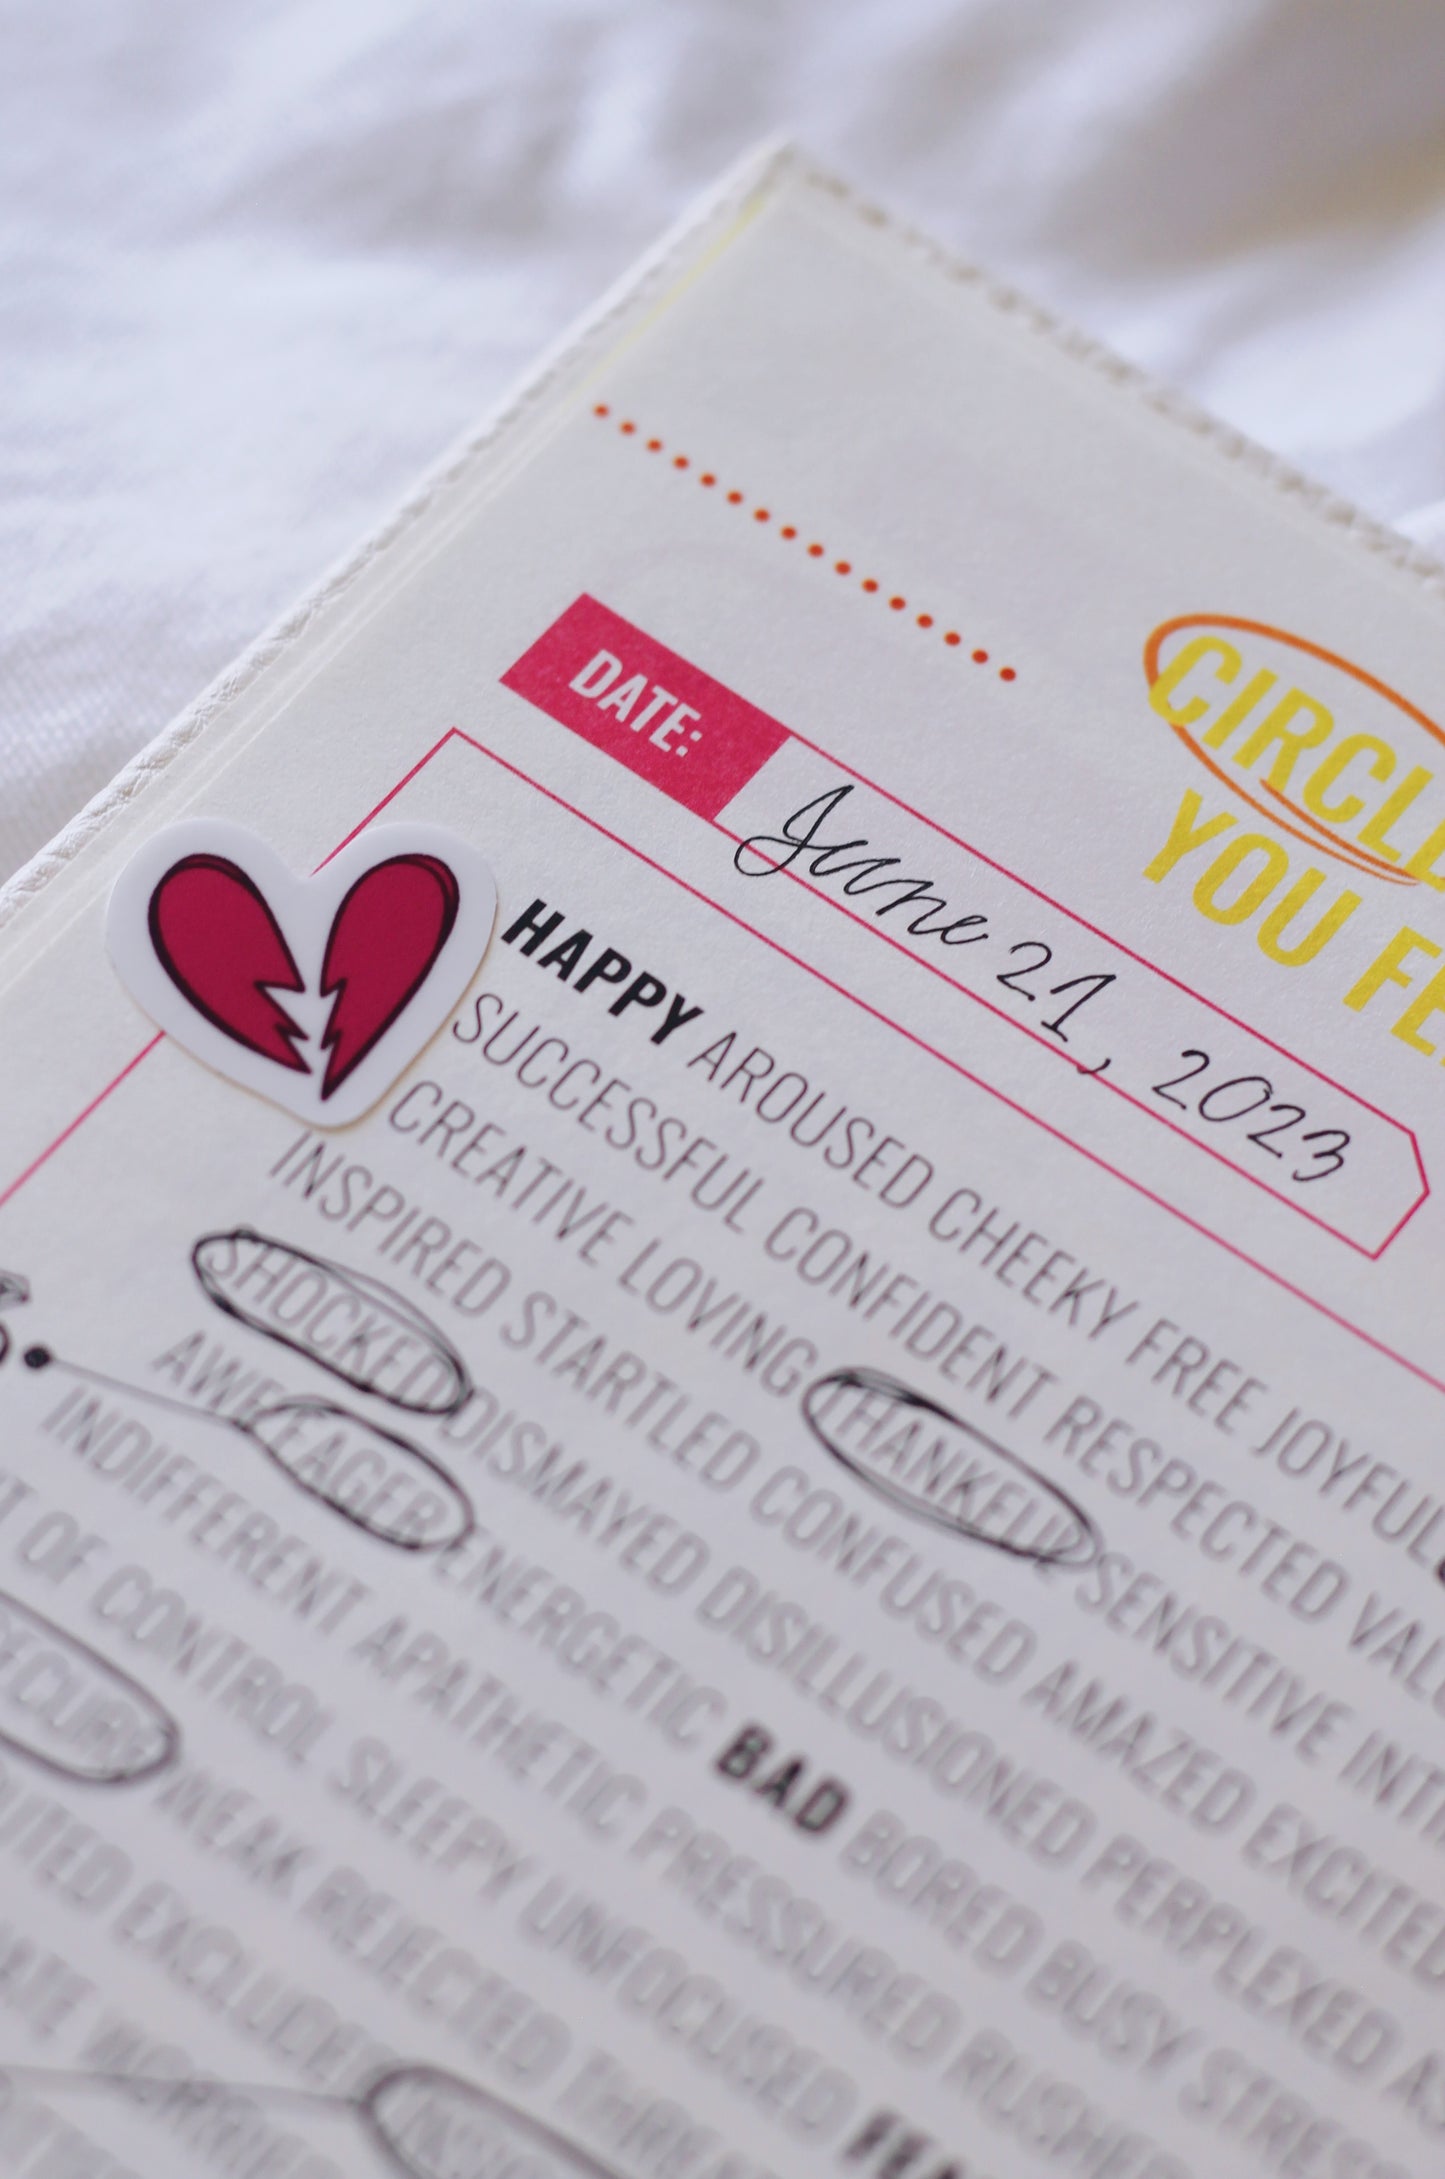 CIRCLE
YOU
DATE: June 21, 2023
HAPPY AROUSED CHEEKY FREE JOYFUL
SUCCESSFUL CONFIDENT RESPECTED
CREATIVE LOVING THANKFUL SENSITIVE
INSPIRED STARTLED CONFUSED AMAZED EXCITED
SHOCKED DISMAYED DISILLUSIONED PERPLEXED
AWE EAGER ENERGETIC BAD BORED BUSY
INDIFFERENT APATHETIC PRESSURED RUSHED
OF CONTROL SLEEPY UNFOCUSED
WEAK REJECTED
EXCLUDED